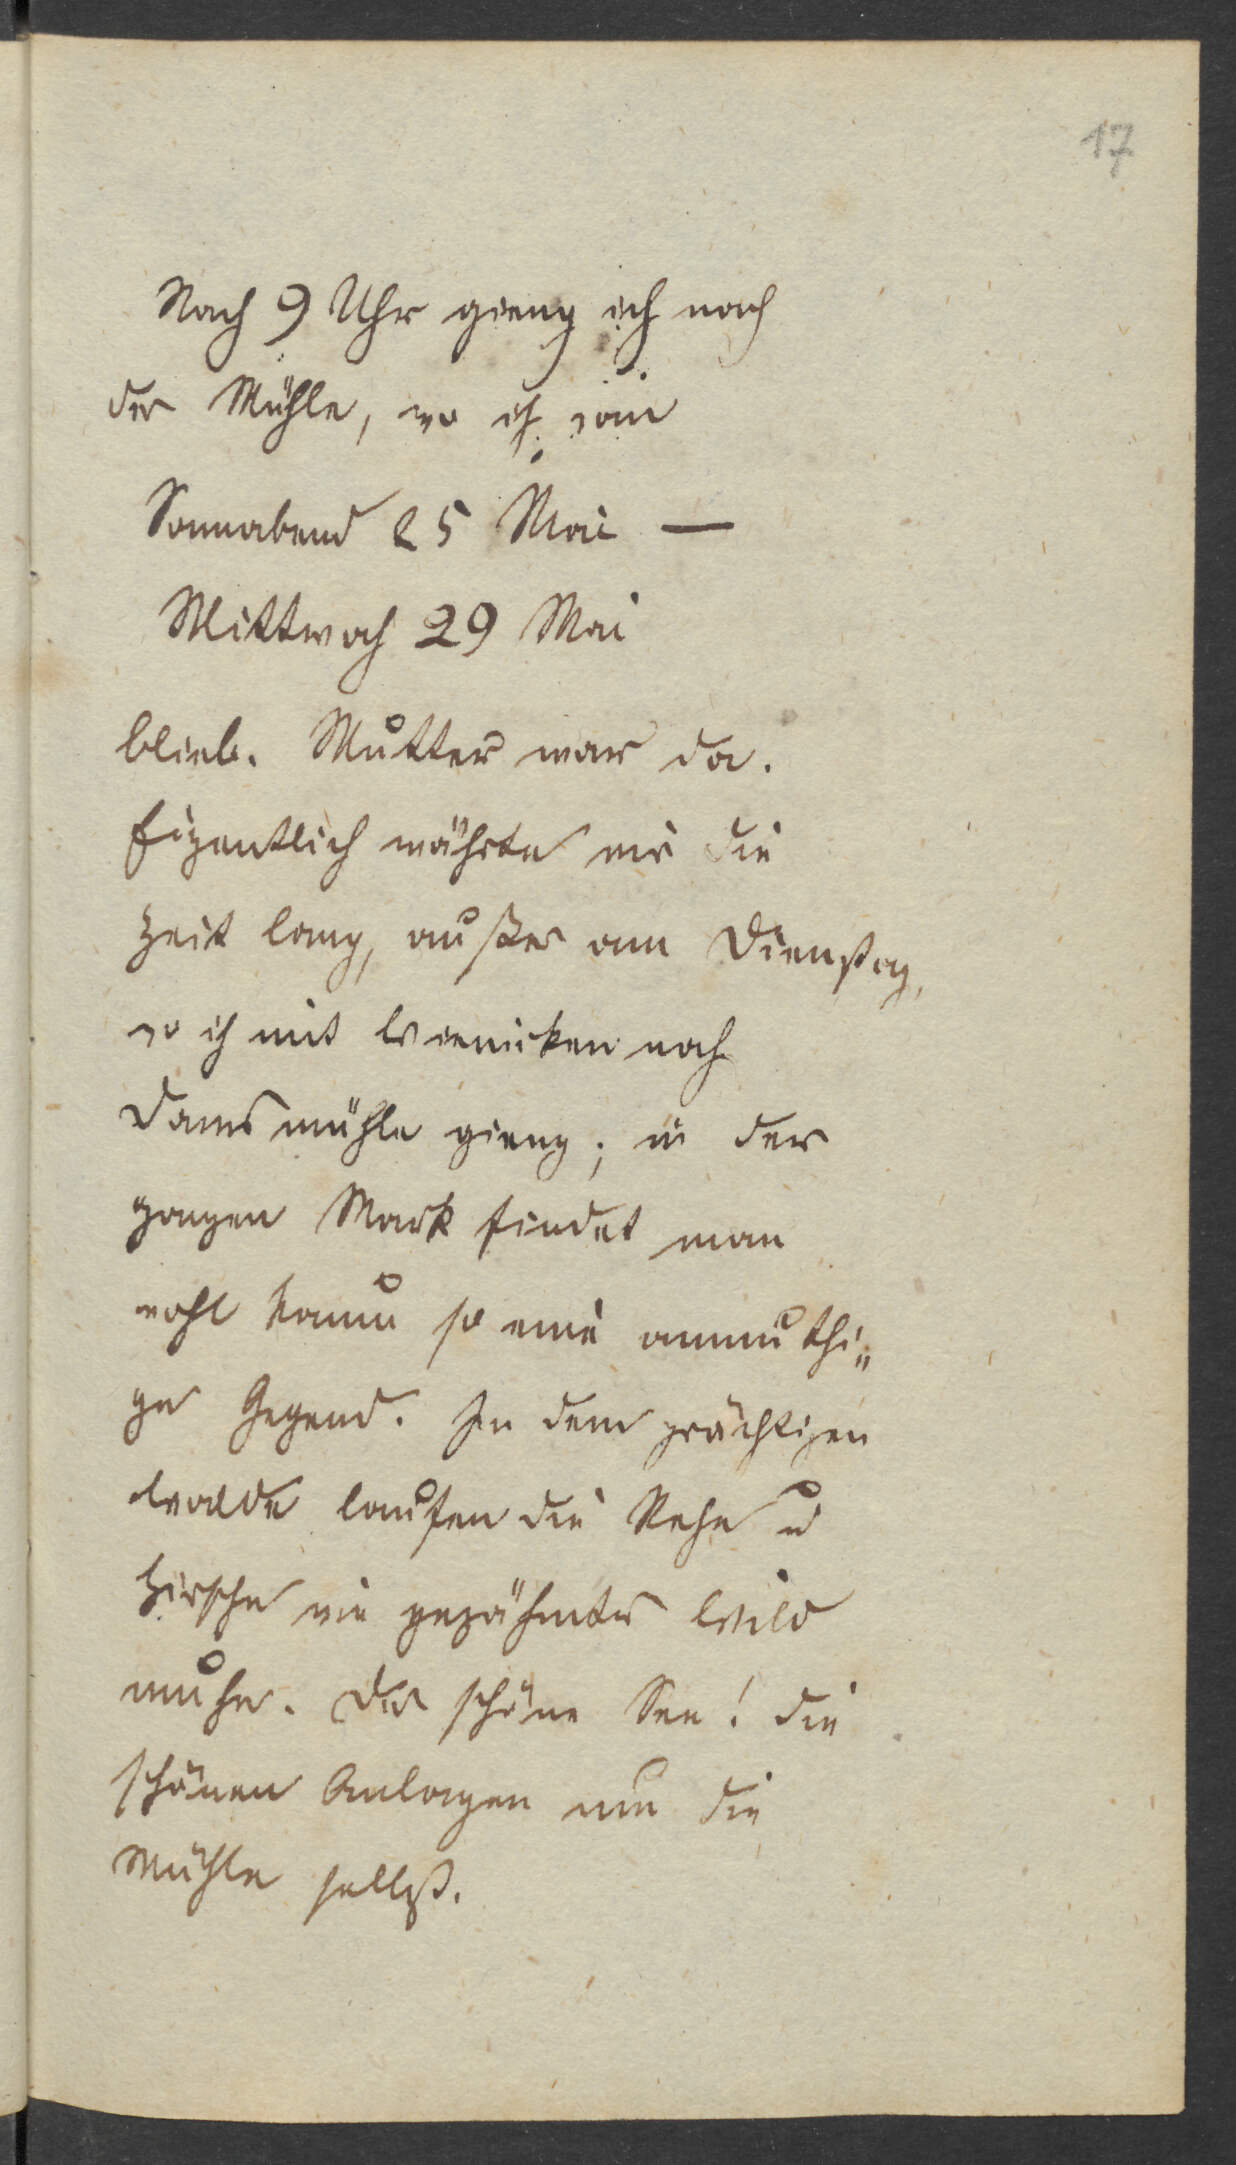 17
Nach 9 Uhr gieng ich nach
der Mühle, wo ich vom
Sonnabend 25 Mai —
Mittwoch 29 Mai
blieb. Mutter war da.
Eigentlich währte mir die
Zeit lang, außer am Dienstag,
wo ich mit Wienicken nach
Damsmühle gieng; in der
ganzen Mark findet man
wohl kaum so eine anmuthi„
ge Gegend. In dem prächtigen
Walde laufen die Rehe u
Hirsche wie gezähmtes Wild
umher. Der schöne See! die
schönen Anlagen um die
Mühle selbst.